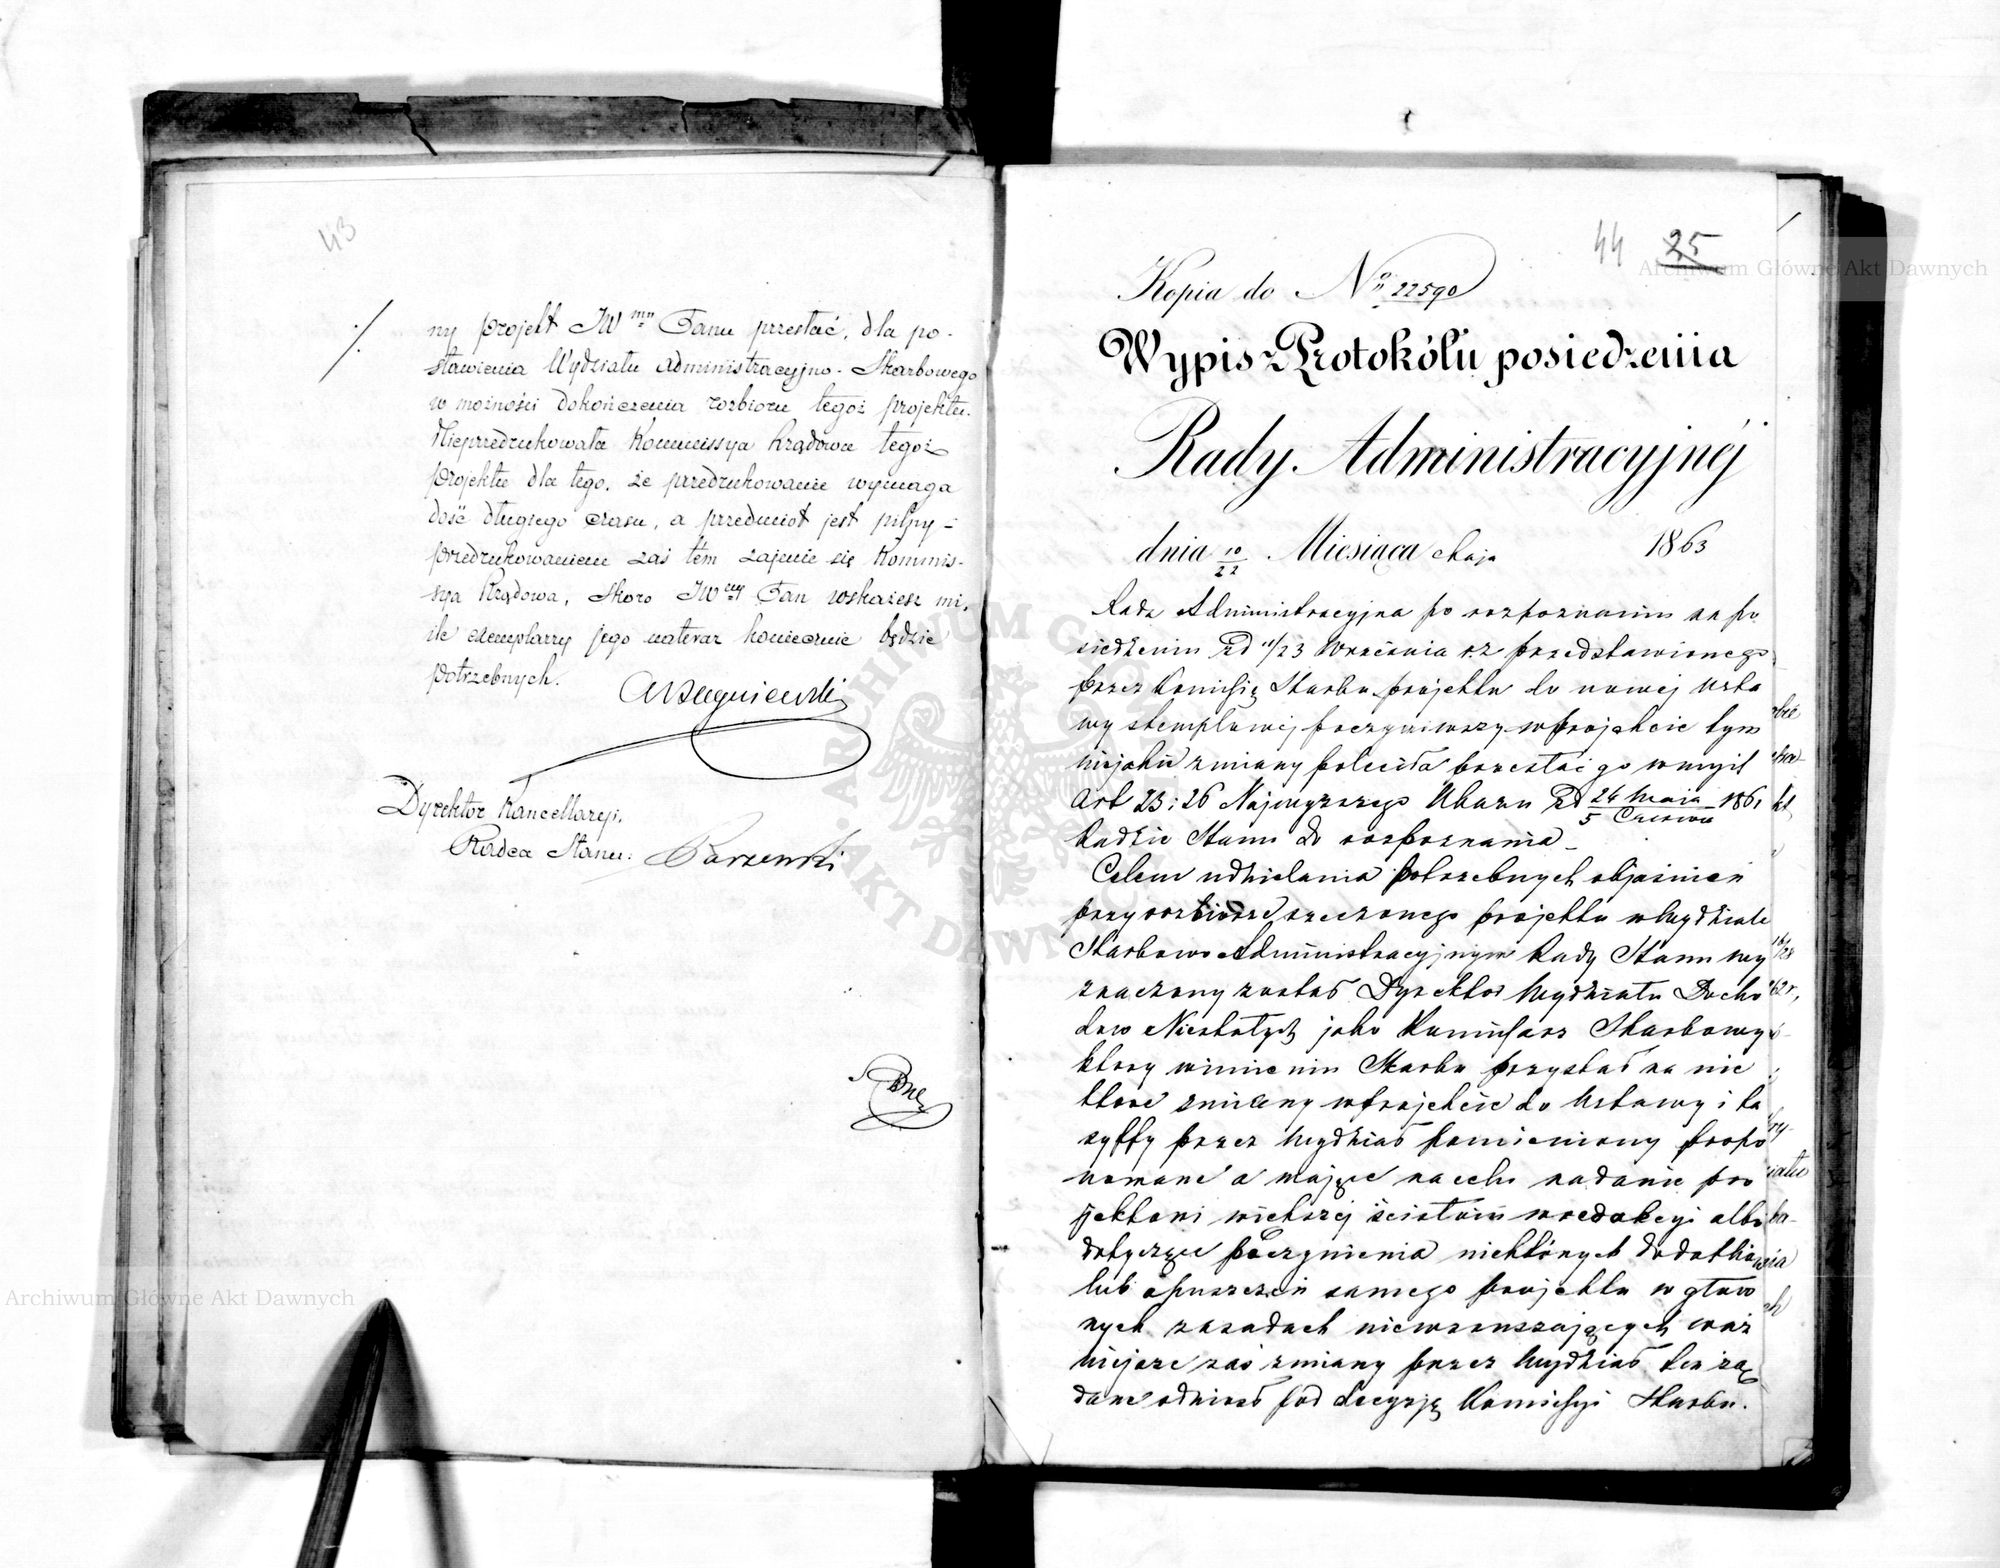 43
ny projekt JW mu Panu przesłać, dla po-
stawienia Wydziału Administracyjno-Skarbowego
w możności dokończenia rozbioru tegoż projektu.
Nieprzedrukowała Kommissya Rządowa tegoż
projektu dla tego, że przedrukowanie wymaga
dość długiego czasu, a przedmiot jest pilny -
przedrukowaniem zaś tém zajmie się Kommis-
sya Rządowa, skoro JW ny Pan wskażesz mi,
ile exemplarzy jego nateraz koniecznie będzie
potrzebnych.
Dyrektor Kancellaryi,
Radca Stanu:
44 25
Kopia do No 22590
Wypis z Protokółu posiedzenia
Rady Administracyjnéj
dnia 10/22 Miesiąca Maja 1863
Rada Administracyjna po rozpoznaniu na po
siedzeniu z d 11/23 Września r.z przedstawionego
przez Komisię Skarbu projektu do nowej Usta
wy stemplowej poczyniwszy w projekcie tym
niejakie zmiany poleciła przesłać go w myśl
Art 23 i 26 Najwyższego Ukazu z d 24 Maja/5 Czerwca 1861
Radzie Stanu do rozpoznania _
Celem udzielania potrzebnych objaśnień
przy rozbiorze rzeczonego projektu w Wydziale
Skarbowo Administracyjnym Rady Stanu wy
znaczony został Dyrektor Wydziału Docho
dów Niestałych jako Kommissarz Skarbowy
który w imieniu Skarbu przystał na nie
które zmiany w projekcie do Ustawy i ta
ryffy przez Wydział pomieniony propo
nowane a mające na celu nadanie pro
jektowi większej ścisłości w redakcyi albo
dotyczące poczynienia niektórych dodatków
lub opuszczeń samego projektu w głów
nych zasadach niewzruszających waż
niejsze zaś zmiany przez Wydział ten żą
dane odniósł pod decyzję Komissyi Skarbu.
Archiwum Główne Akt Dawnych
Archiwum Główne Akt Dawnych
ARCHIWUM GŁÓWNE AKT DAWNYCH